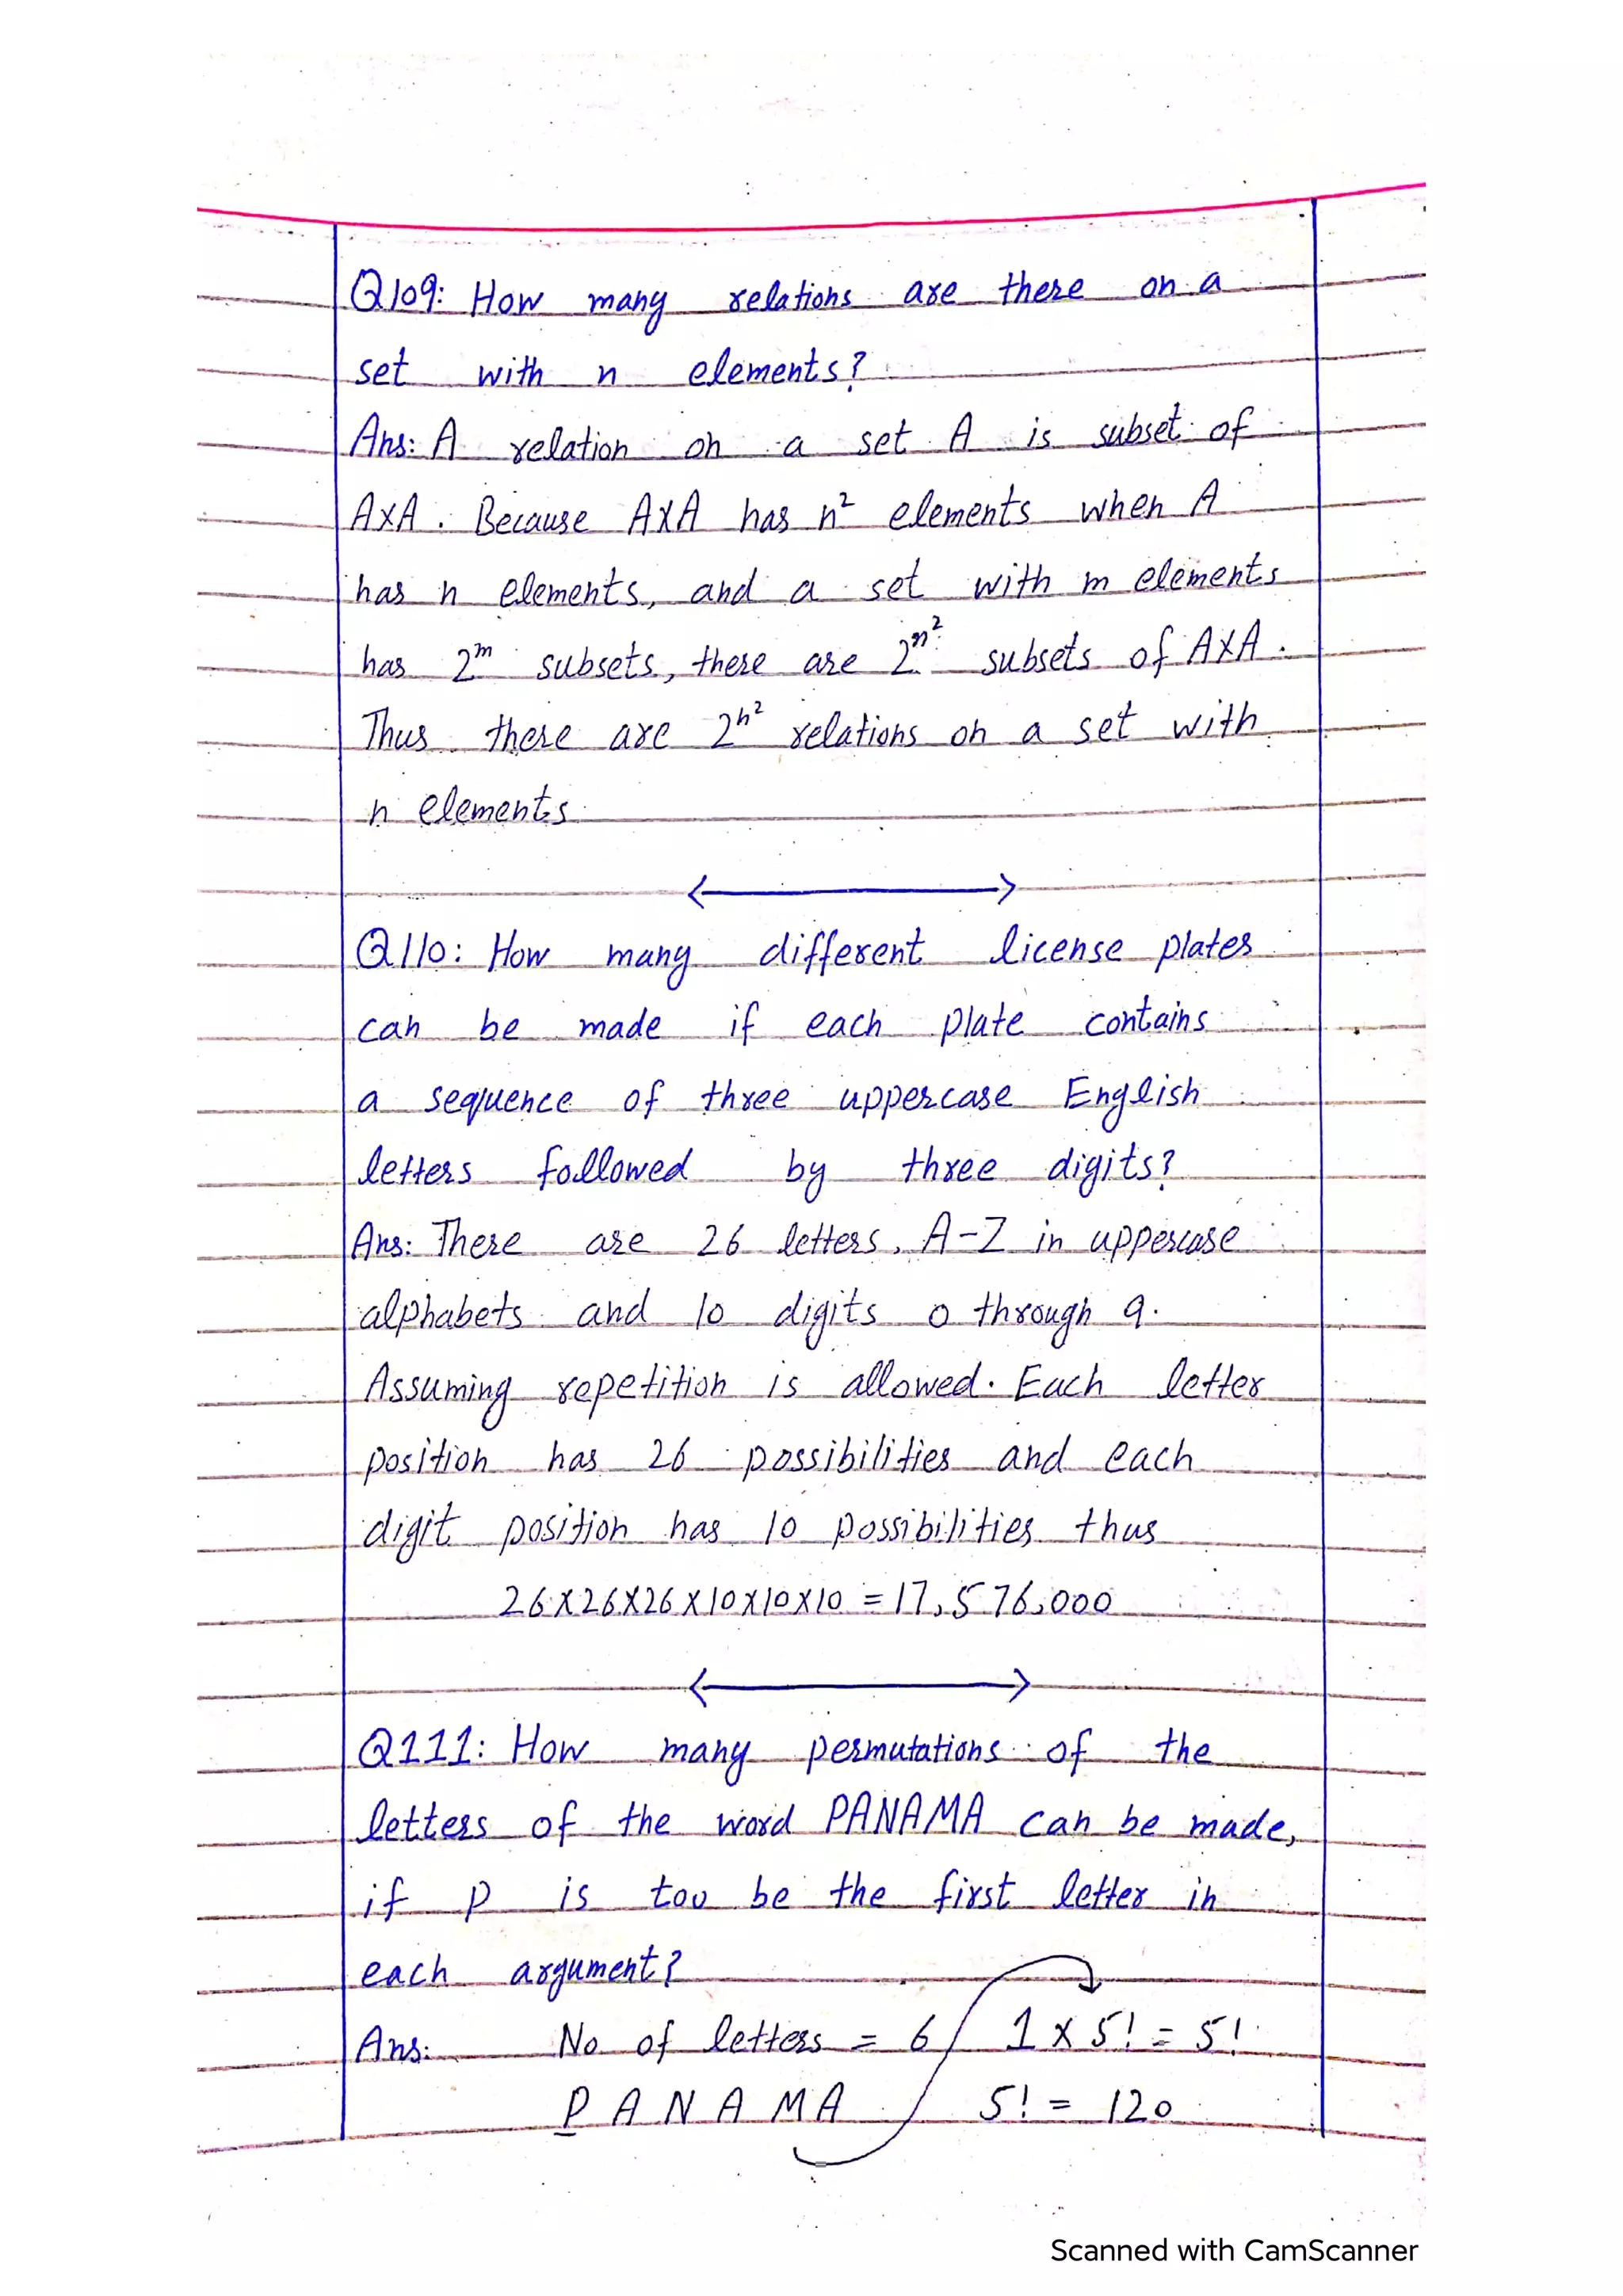 Q109: How many relations are there on a
set with n elements?
Ans: A relation on a set A is subset of
A×A. Because A×A has n² elements when A
has n elements, and a set with m elements
has 2^m subsets, there are 2^n² subsets of A×A.
Thus there are 2^n² relations on a set with
n elements.
Q110: How many different license plates
can be made if each plate contains
a sequence of three uppercase English
letters followed by three digits?
Ans: There are 26 letters, A-Z in uppercase
alphabets and 10 digits 0 through 9.
Assuming repetition is allowed. Each letter
position has 26 possibilities and each
digit position has 10 possibilities thus
26×26×26×10×10×10 = 17,576,000
Q111: How many permutations of the
letters of the word PANAMA can be made,
if P is too be the first letter in
each argument?
Ans: No of letters = 6 1 × 5! = 5!
P A N A M A 5! = 120
Scanned with CamScanner